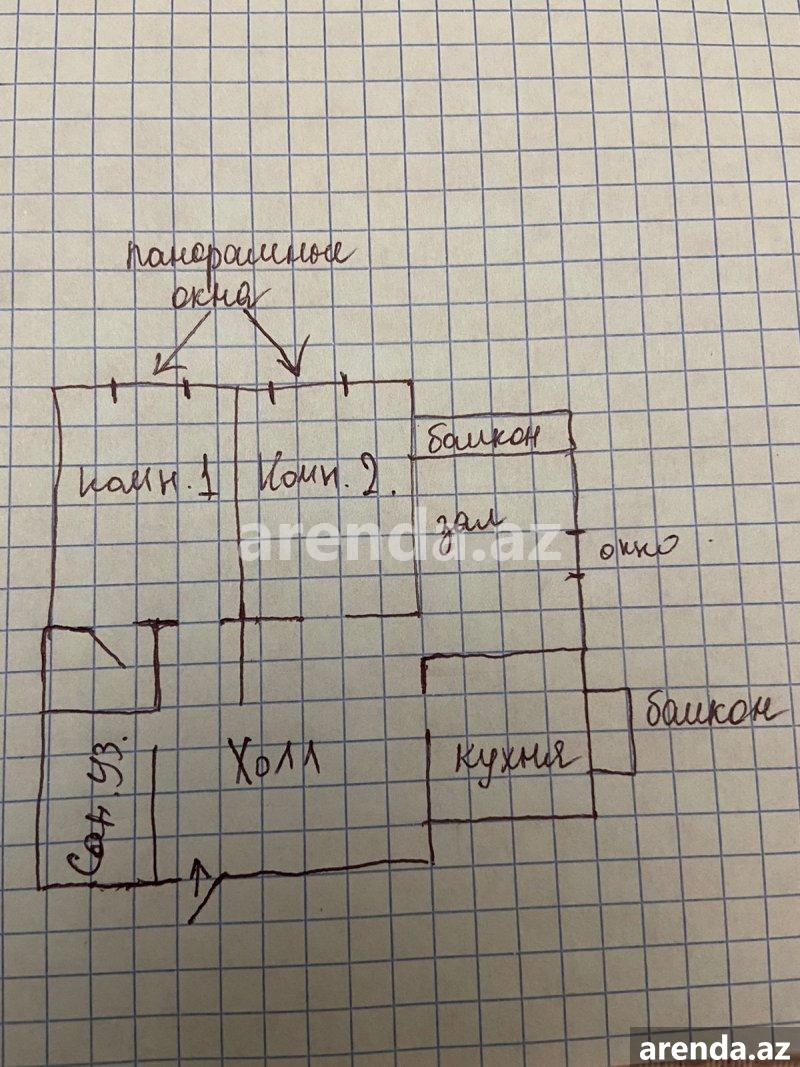 панорамные
окна
балкон
комн. 1
комн. 2.
зал
arenda.az
окно
балкон
Холл
кухня
Сан. уз.
arenda.az